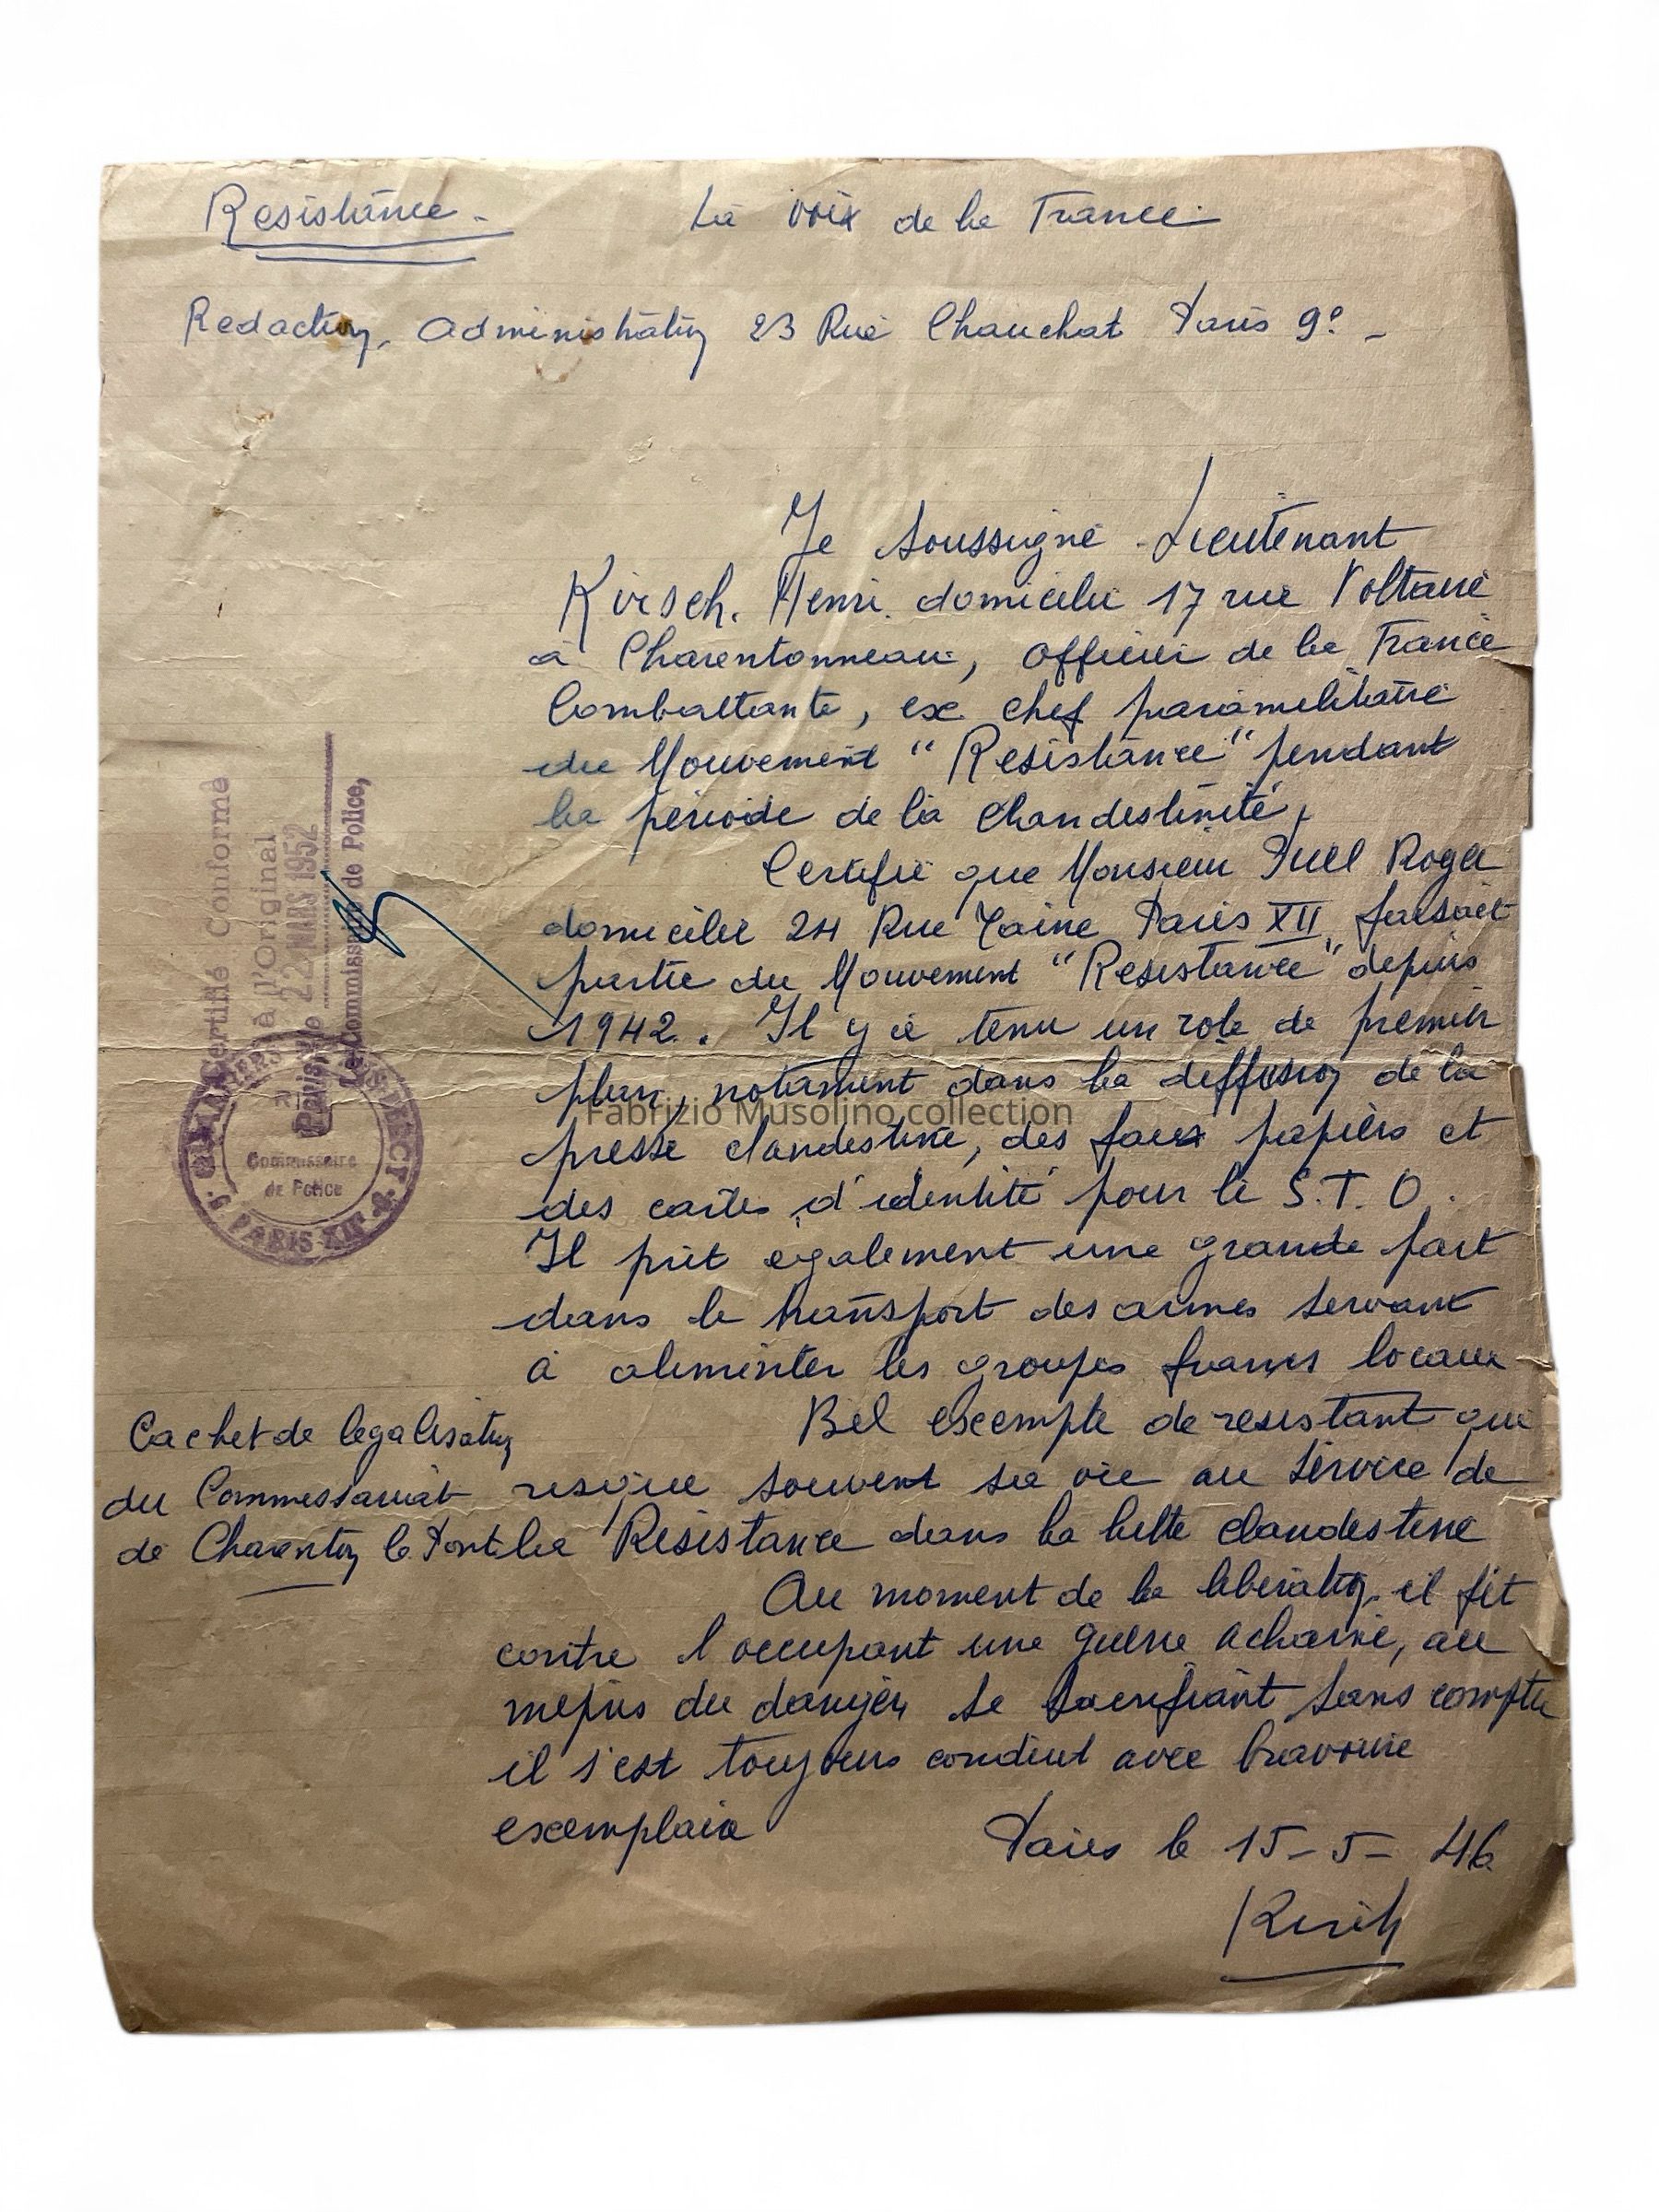 Resistance - La voix de la France
Redaction, Administration 23 Rue Chauchat Paris 9e -
Je soussigné Lieutenant
Kirsch. Henri. domicilié 17 rue Voltaire
à Charentonneau, Officier de la France
Combattante, ex chef paramilitaire
du Mouvement "Resistance" pendant
la période de la clandestinité,
Certifie que Monsieur Roger
domicilié 24 Rue Taine Paris XII faisait
partie du Mouvement "Resistance" depuis
1942. Il y a tenu un role de premier
plan, notament dans la diffusion de la
presse clandestine, des faux papiers et
des cartes d'identité pour le S.T.O.
Il prit egalement une grande part
dans le transport des armes servant
à alimenter les groupes francs locaux
Bel exemple de resistant qui
risque souvent sa vie au service de
la Résistance dans la lutte clandestine
Au moment de la liberation, il fit
contre l'occupant une guerre acharné, au
mepris du danger se sacrifiant sans compter
il s'est toujours conduit avec bravoure
exemplaire
Paris le 15-5-46
Kirsch
Cachet de legalisation
du Commissariat
de Charenton le Pont
Certifié Conforme
à l'Original
Paris, le 22 MARS 1952
Le Commissaire de Police,
Commissaire
de Police
PARIS XIIe
Fabrizio Musolino collection